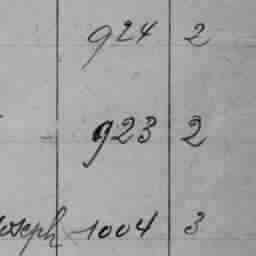 924 2
923 2
oseph 1004 3